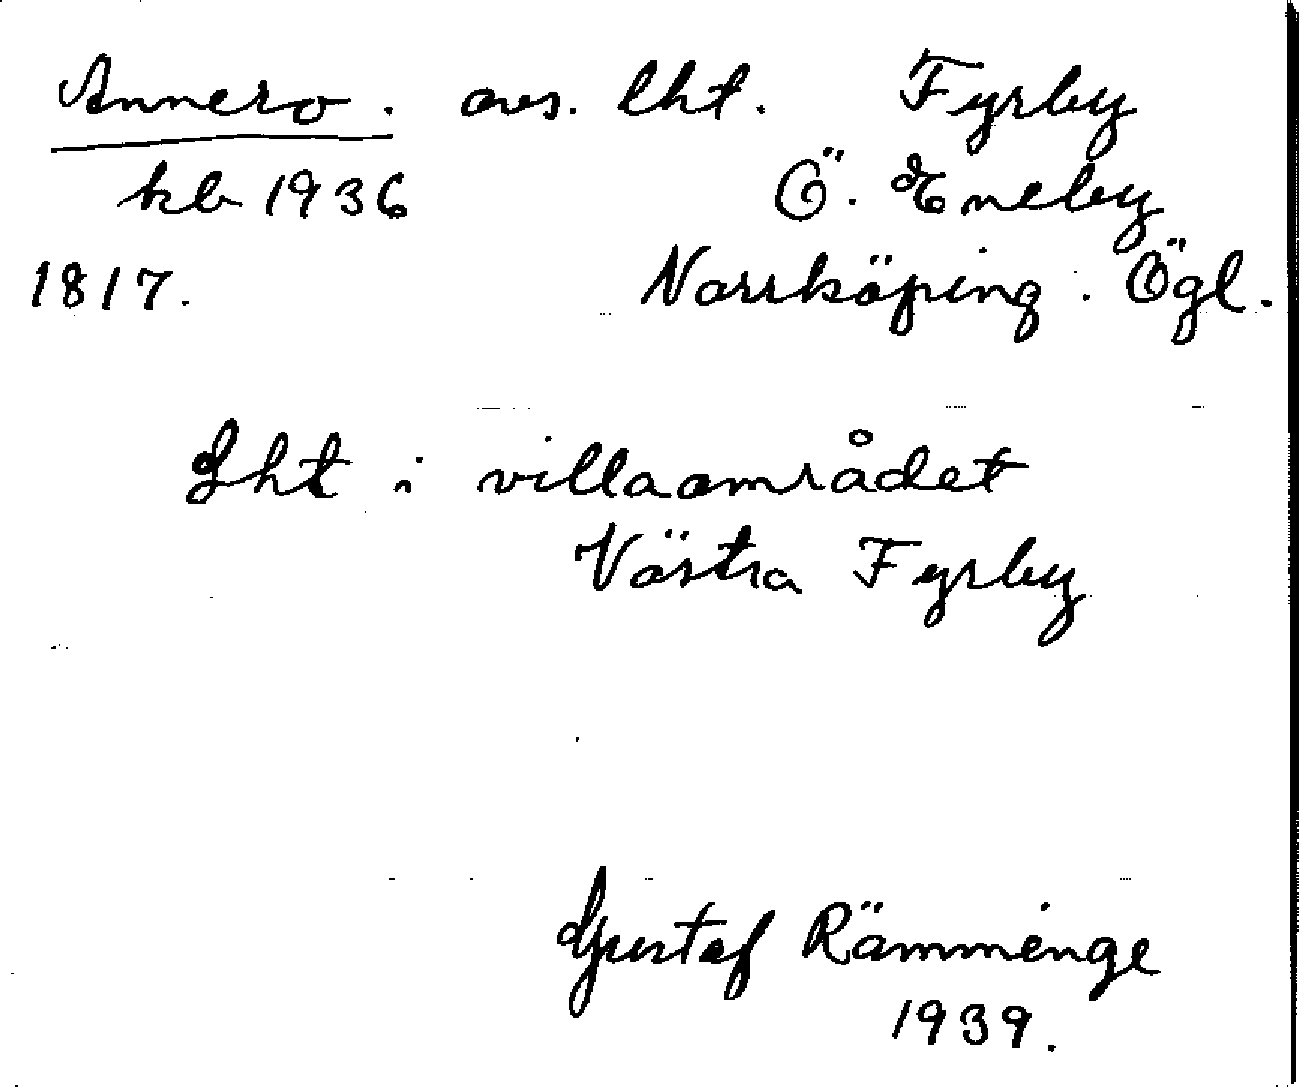 Annero. avs. lht. Fyrby
kb 1936 Ö. Eneby
1817. Norrköping. Ögl.
Lht i villaområdet
Västra Fyrby
Gustaf Rämminge
1939.